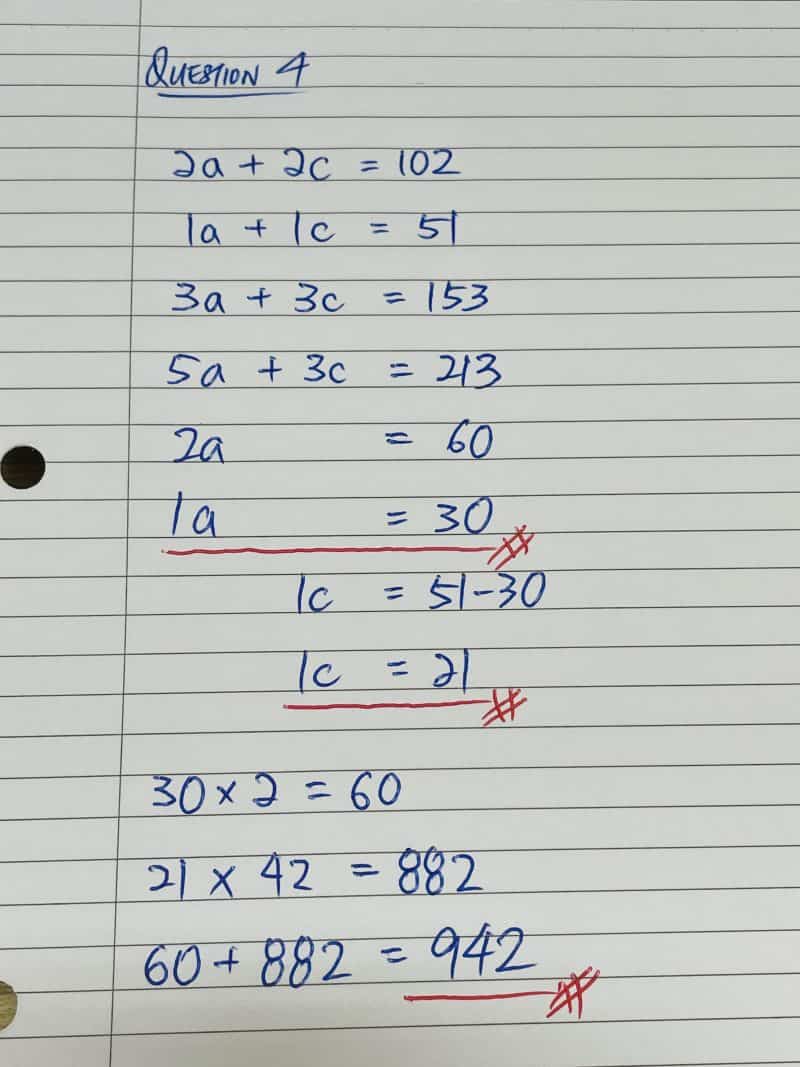 QUESTION 4
2a + 2c = 102
1a + 1c = 51
3a + 3c = 153
5a + 3c = 213
2a = 60
1a = 30
1c = 51-30
1c = 21
30 × 2 = 60
21 × 42 = 882
60 + 882 = 942